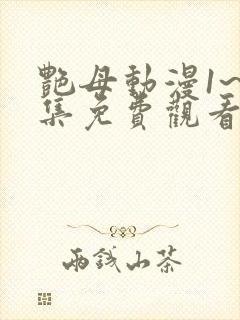 艷母動漫1~
集免費觀看
兩錢山茶